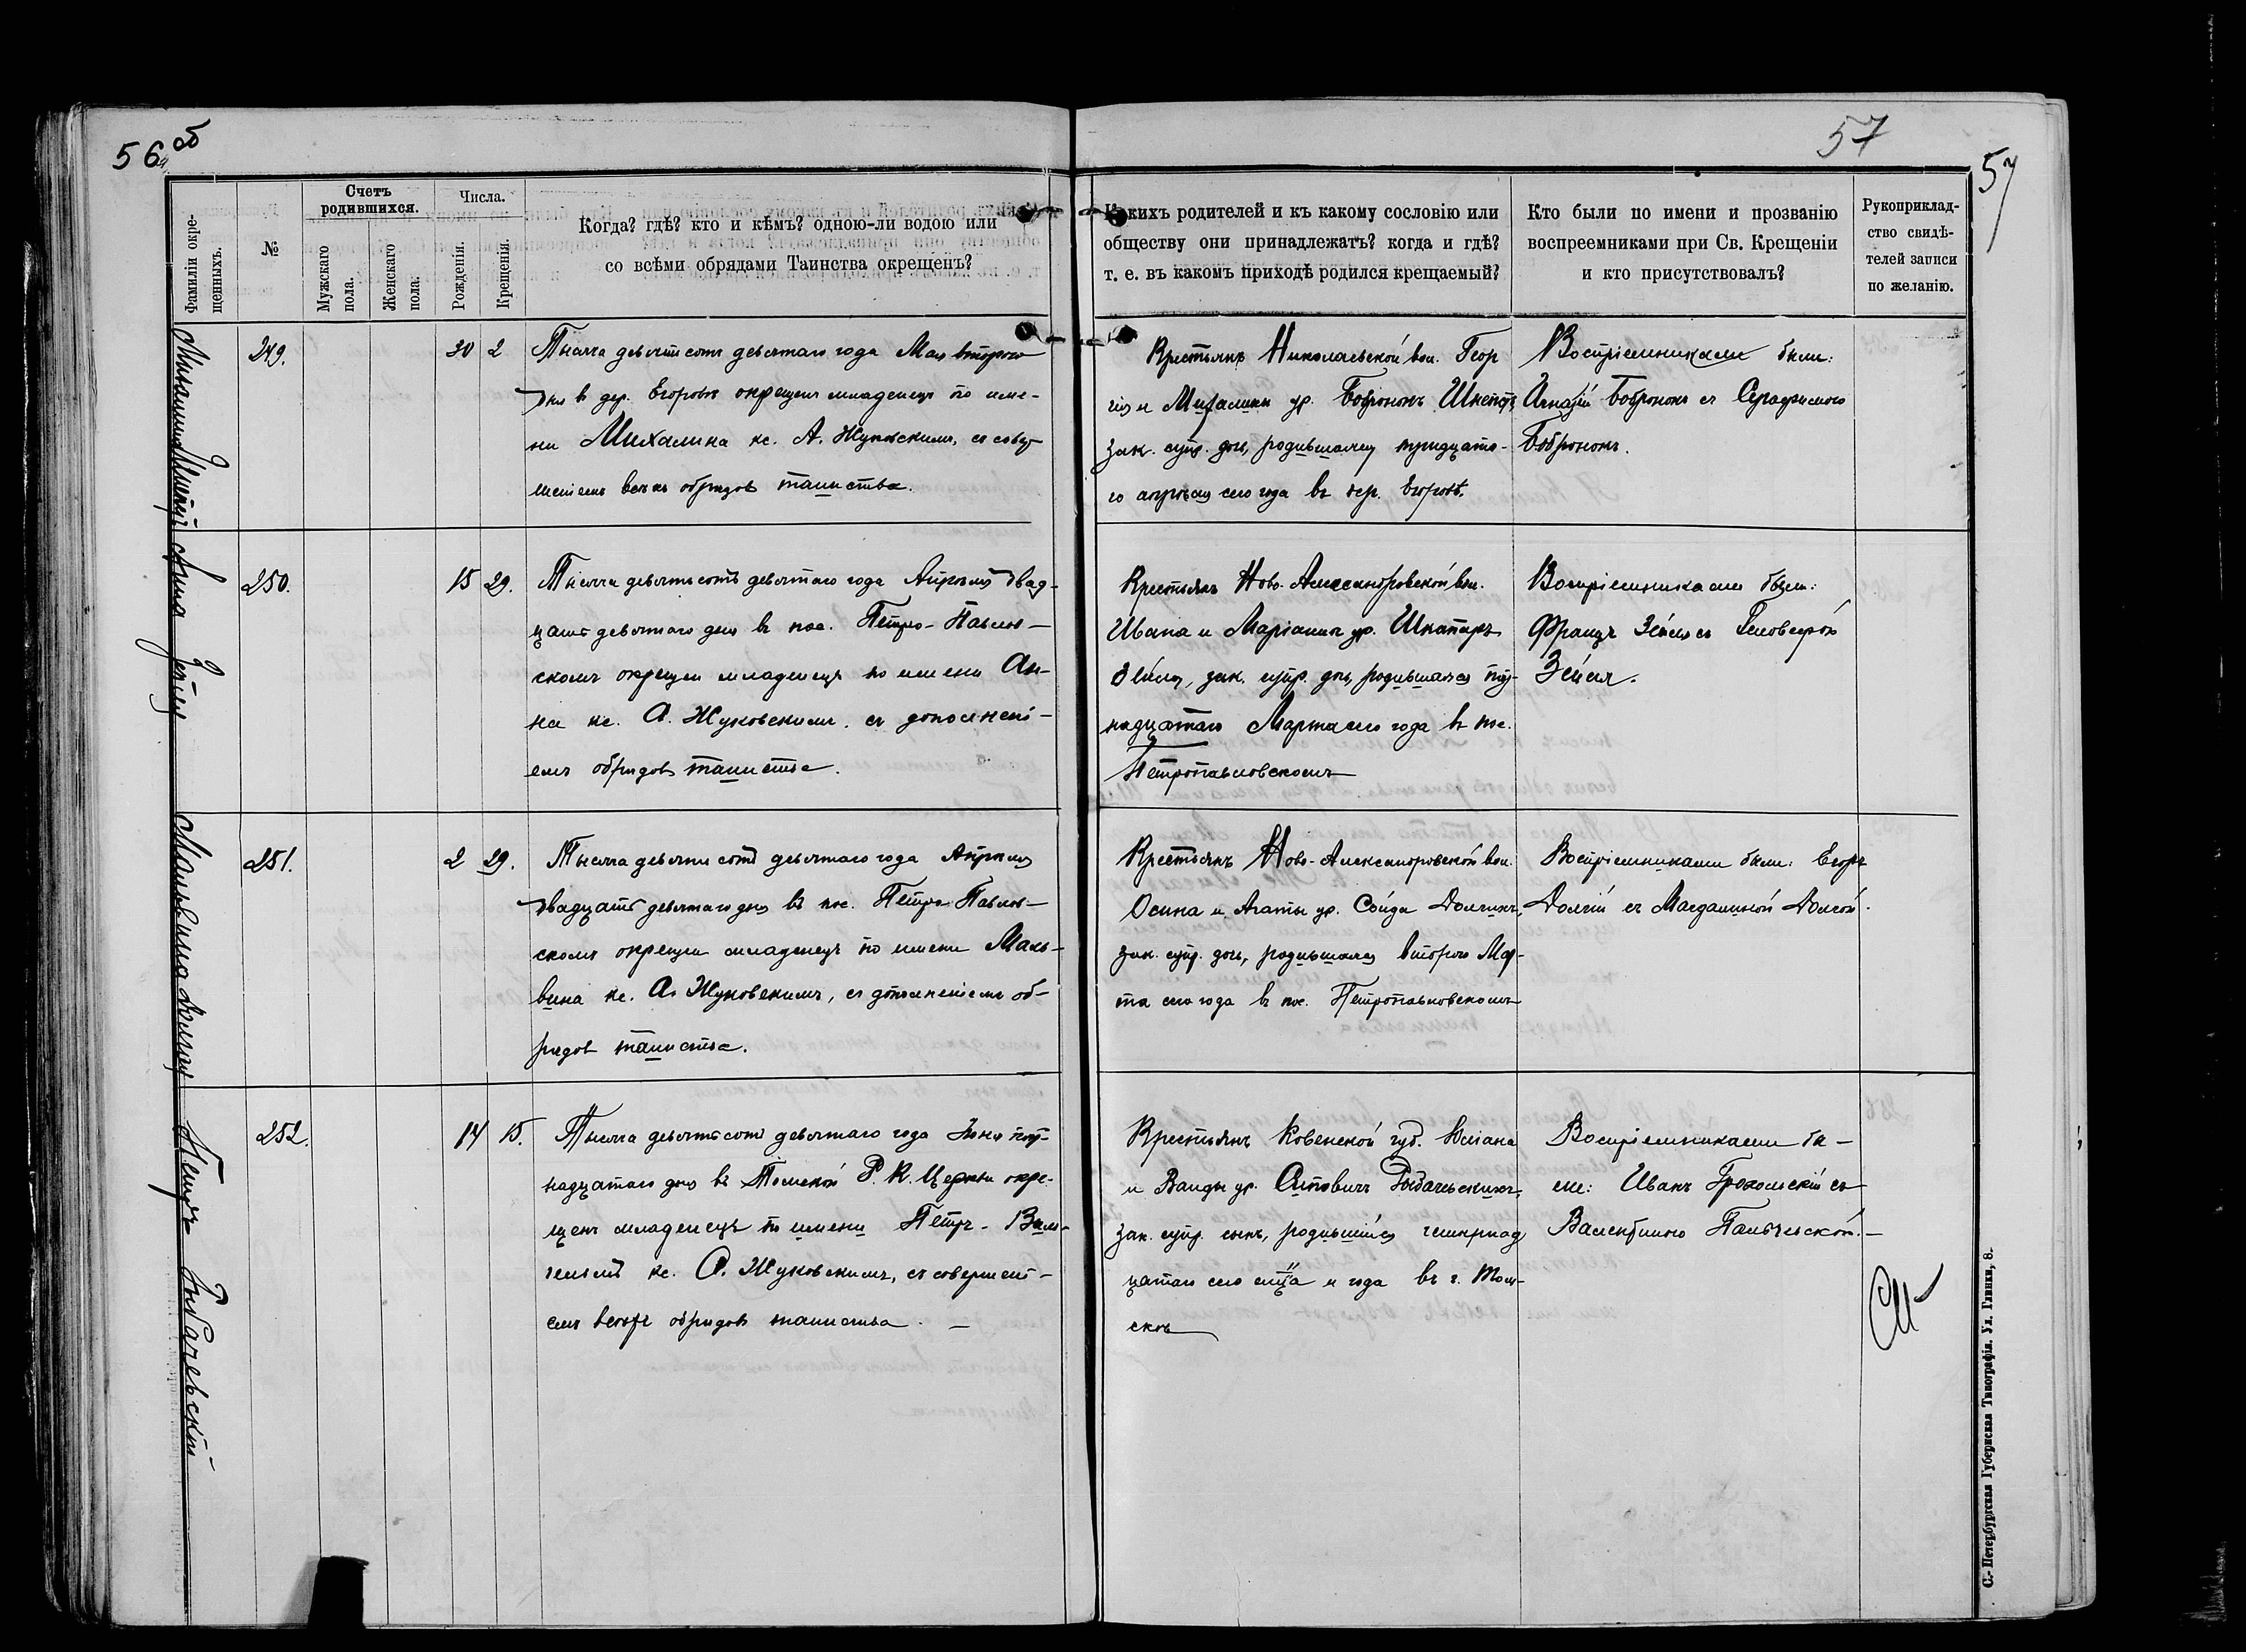 56 об
57
57
Фамиліи окре-
щенныхъ.
№
Счетъ
родившихся.
Мужскаго
пола.
Женскаго
пола.
Числа.
Рожденія.
Крещенія.
Когда? гдѣ? кто и кѣмъ? одною-ли водою или
со всѣми обрядами Таинства окрещенъ?
Какихъ родителей и къ какому сословію или
обществу они принадлежатъ? когда и гдѣ?
т. е. въ какомъ приходѣ родился крещаемый?
Кто были по имени и прозванію
воспреемниками при Св. Крещеніи
и кто присутствовалъ?
Рукоприклад-
ство свидѣ-
телей записи
по желанію.
Михалина
249.
30 2
Тысяча девятьсотъ девятаго года Мая второго
дня въ дер. Егоровкѣ окрещенъ младенецъ по име-
ни Михалина кс. А. Жуковскимъ, съ совер-
шеніемъ всѣхъ обрядовъ таинства.
Крестьянъ Николаевской вол. Геор
гія и Михалины ур. Бобрононъ
зак. супр. дочь, родившаяся тридцато-
го апрѣля сего года въ дер. Егоровкѣ.
Воспріемниками были:
Игнатій Бобрононъ съ Серафиною
Бобрононъ.
Анна Зейля
250.
15 29.
Тысяча девятьсотъ девятаго года Апрѣля двад-
цать девятаго дня въ пос. Петро-Павлов-
скомъ окрещенъ младенецъ по имени Ан-
на кс. А. Жуковскимъ, съ дополнені-
емъ обрядовъ таинства.
Крестьянъ Ново-Александровской вол.
Ивана и Маріанны ур. Шкапаръ
Зейля, зак. супр. дочь, родившаяся пят-
надцатаго Марта сего года въ пос.
Петропавловскомъ
Воспріемниками были:
Францъ Зейля съ
Зейля.
Мальвина Долгая
251.
2 29.
Тысяча девятьсотъ девятаго года Апрѣля
двадцать девятаго дня въ пос. Петро-Павлов-
скомъ окрещенъ младенецъ по имени Маль-
вина кс. А. Жуковскимъ, съ дополненіемъ об-
рядовъ таинства.
Крестьянъ Ново-Александровской вол.
Осипа и Агаты ур. Сойда Долгихъ,
зак. супр. дочь, родившаяся второго Мар-
та сего года въ пос. Петропавловскомъ
Воспріемниками были: Егоръ
Долгій съ Магдалиной Долгой.
Петръ Рыбачевскій
252.
14 15.
Тысяча девятьсотъ девятаго года Іюня пят-
надцатаго дня въ Томской Р. К. Церкви окре-
щенъ младенецъ по имени Петръ-
кс. А. Жуковскимъ, съ совершені-
емъ всѣхъ обрядовъ таинства. —
Крестьянъ Ковенской губ. Юліана
и Ванды ур. Рыбачевскихъ,
зак. супр. сынъ, родившійся четырнад
цатаго сего м-ца и года въ г. Том-
скѣ
Воспріемниками бы-
ли: Иванъ Грохольскій съ
Валентиною Пальчевской. —
С.-Петербургская Губернская Типографія. Ул. Глинки, 8.